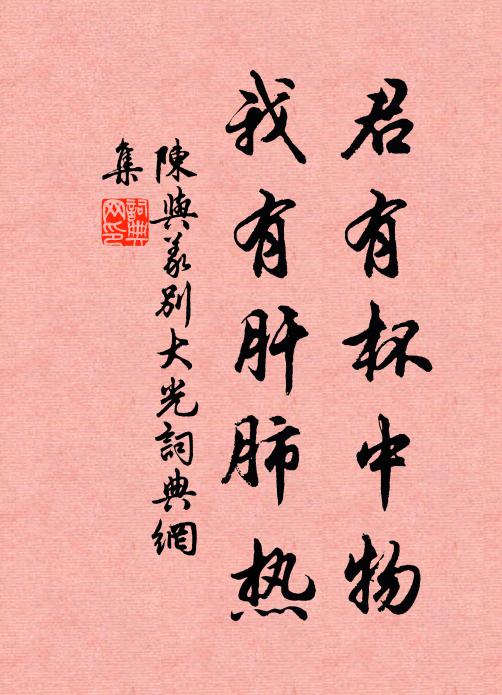 君有杯中物
我有肝肺热
陳與義别大光詞典網
集
詞典网印